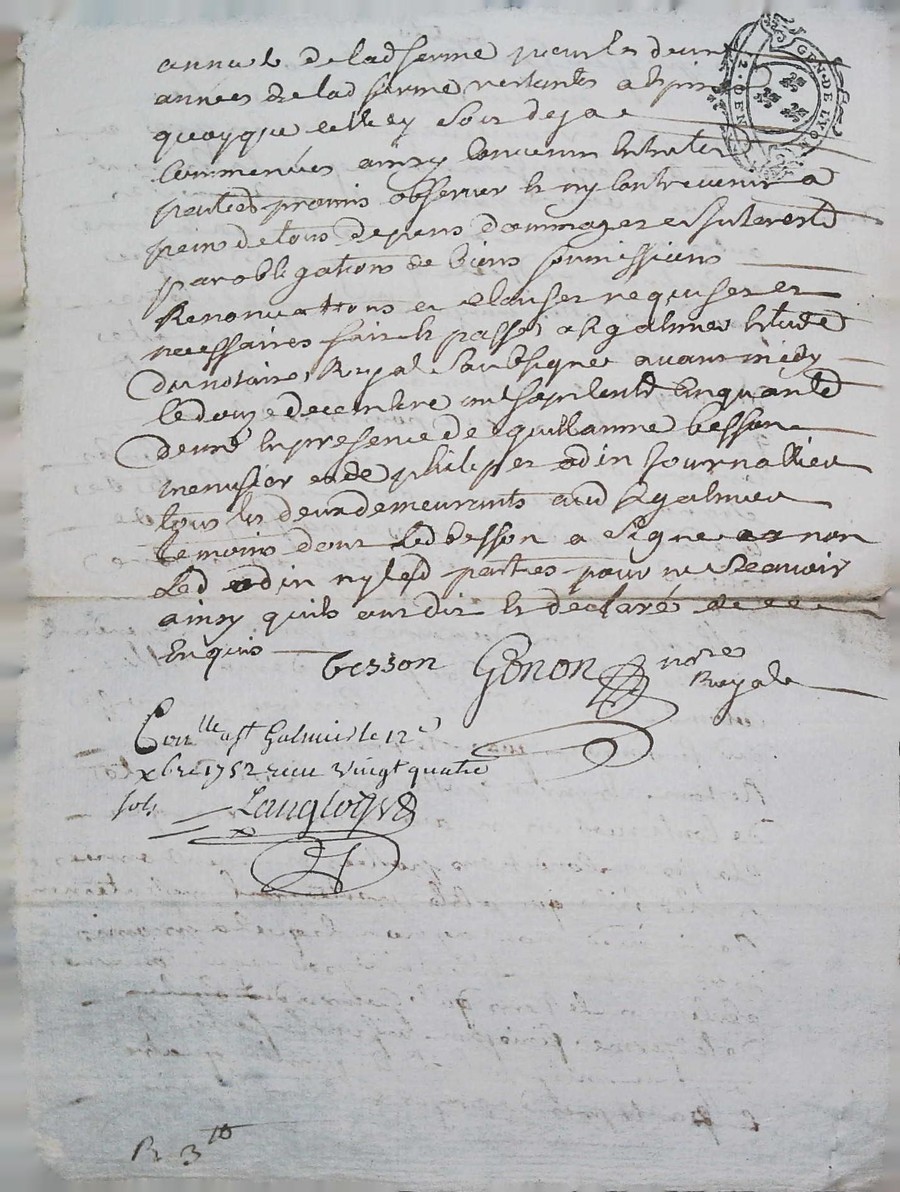 GEN. DE LYON
2. DEN.
annuel de lad ferme pour les deux
années de lad ferme restantes a
quoyque celle cy soit deja
commencées ainsy convenu entre les
parties promis observer et ny contrevenir a
peine de tous depens dommages et Interestz
par obligations de biens soumissions
Renonciations et clauses requises et
necessaires fait et passé a st galmier Etude
du notaire Royal soubsigné avant midy
le douze decembre mil sept cent Cinquante
deux En presence de guillaume besson
menusier et de philipes odin journallier
tous les deux demeurants aud st galmier
temoins dont led besson a signé et non
Led odin ny lesd parties pour ne scavoir
ainsy quils ont dit et declaré de ce
Enquis
besson Gonon no.re
Royal
Con.lle a st Galmier le 12e
xbre 1752 receu vingt quatre
sols
Langloys
R 3 lt